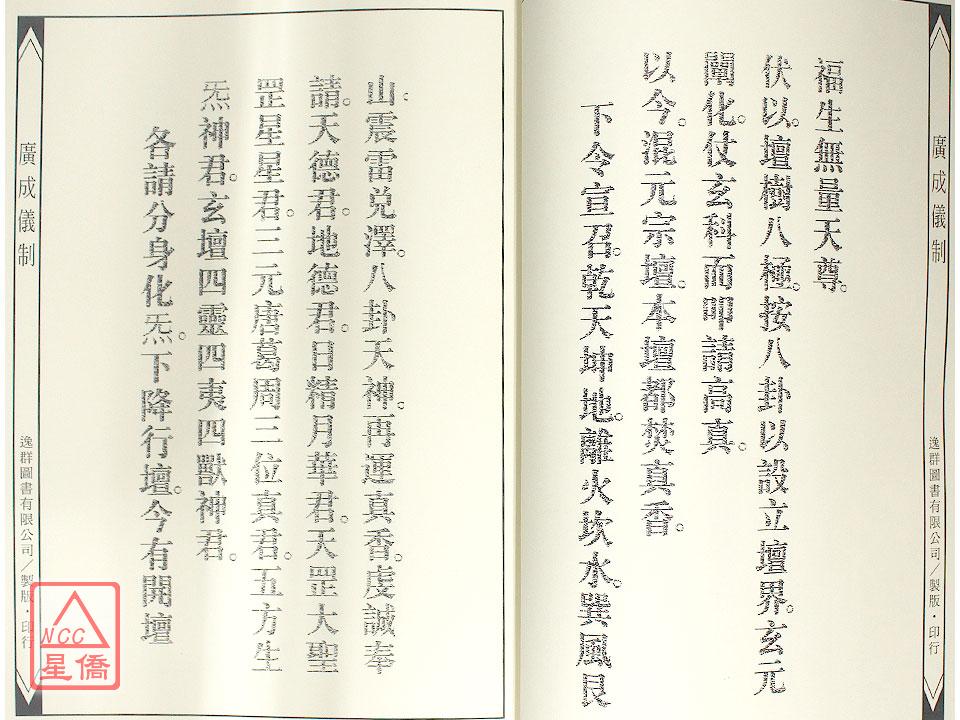 廣成儀制
逸群圖書有限公司／製版・印行
福生無量天尊。
伏以。壇樹八極。按八卦以設立壇界。玄元
闡化。仗玄科而真。
以今。混元宗壇。本壇焚真香。
下令宣召。乾天坤地。離火坎水。巽風艮
山震雷兌澤。八卦天神。再運真香。虔誠奉
請天德君。地德君。日精月華君。天罡大聖
罡星星君。三元唐葛周三位真君。五方生
炁神君。玄壇四靈四夷四獸神君。
各請分身化炁。下降行壇。今有開壇
廣成儀制
逸群圖書有限公司／製版・印行
NCC
星僑